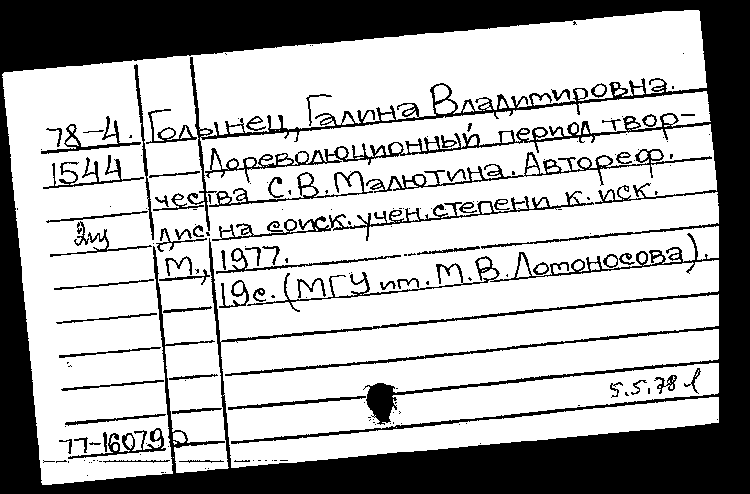 78-4. Голынец, Галина Владимировна.
1544 Дореволюционный период твор-
чества С.В.Малютина. Автореф.
дис. на соиск. учен. степени к. иск.
М., 1977.
19с. (МГУ им. М.В. Ломоносова).
5.5.78
77-16079